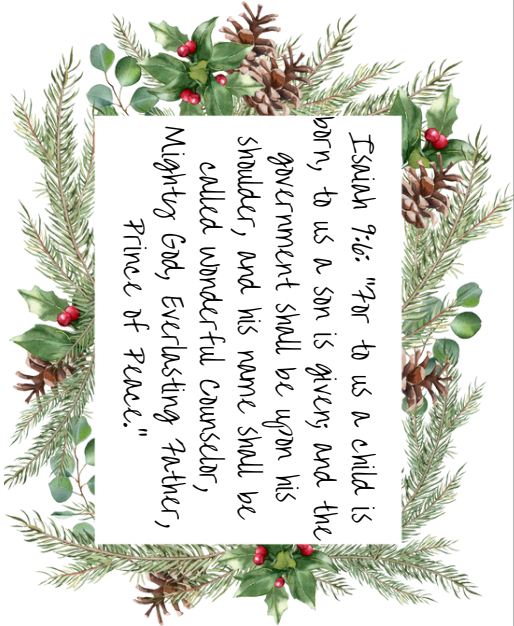 Isaiah 9:6: "For to us a child is
born, to us a son is given; and the
government shall be upon his
shoulder, and his name shall be
called wonderful counselor,
Mighty God, Everlasting Father,
Prince of Peace."